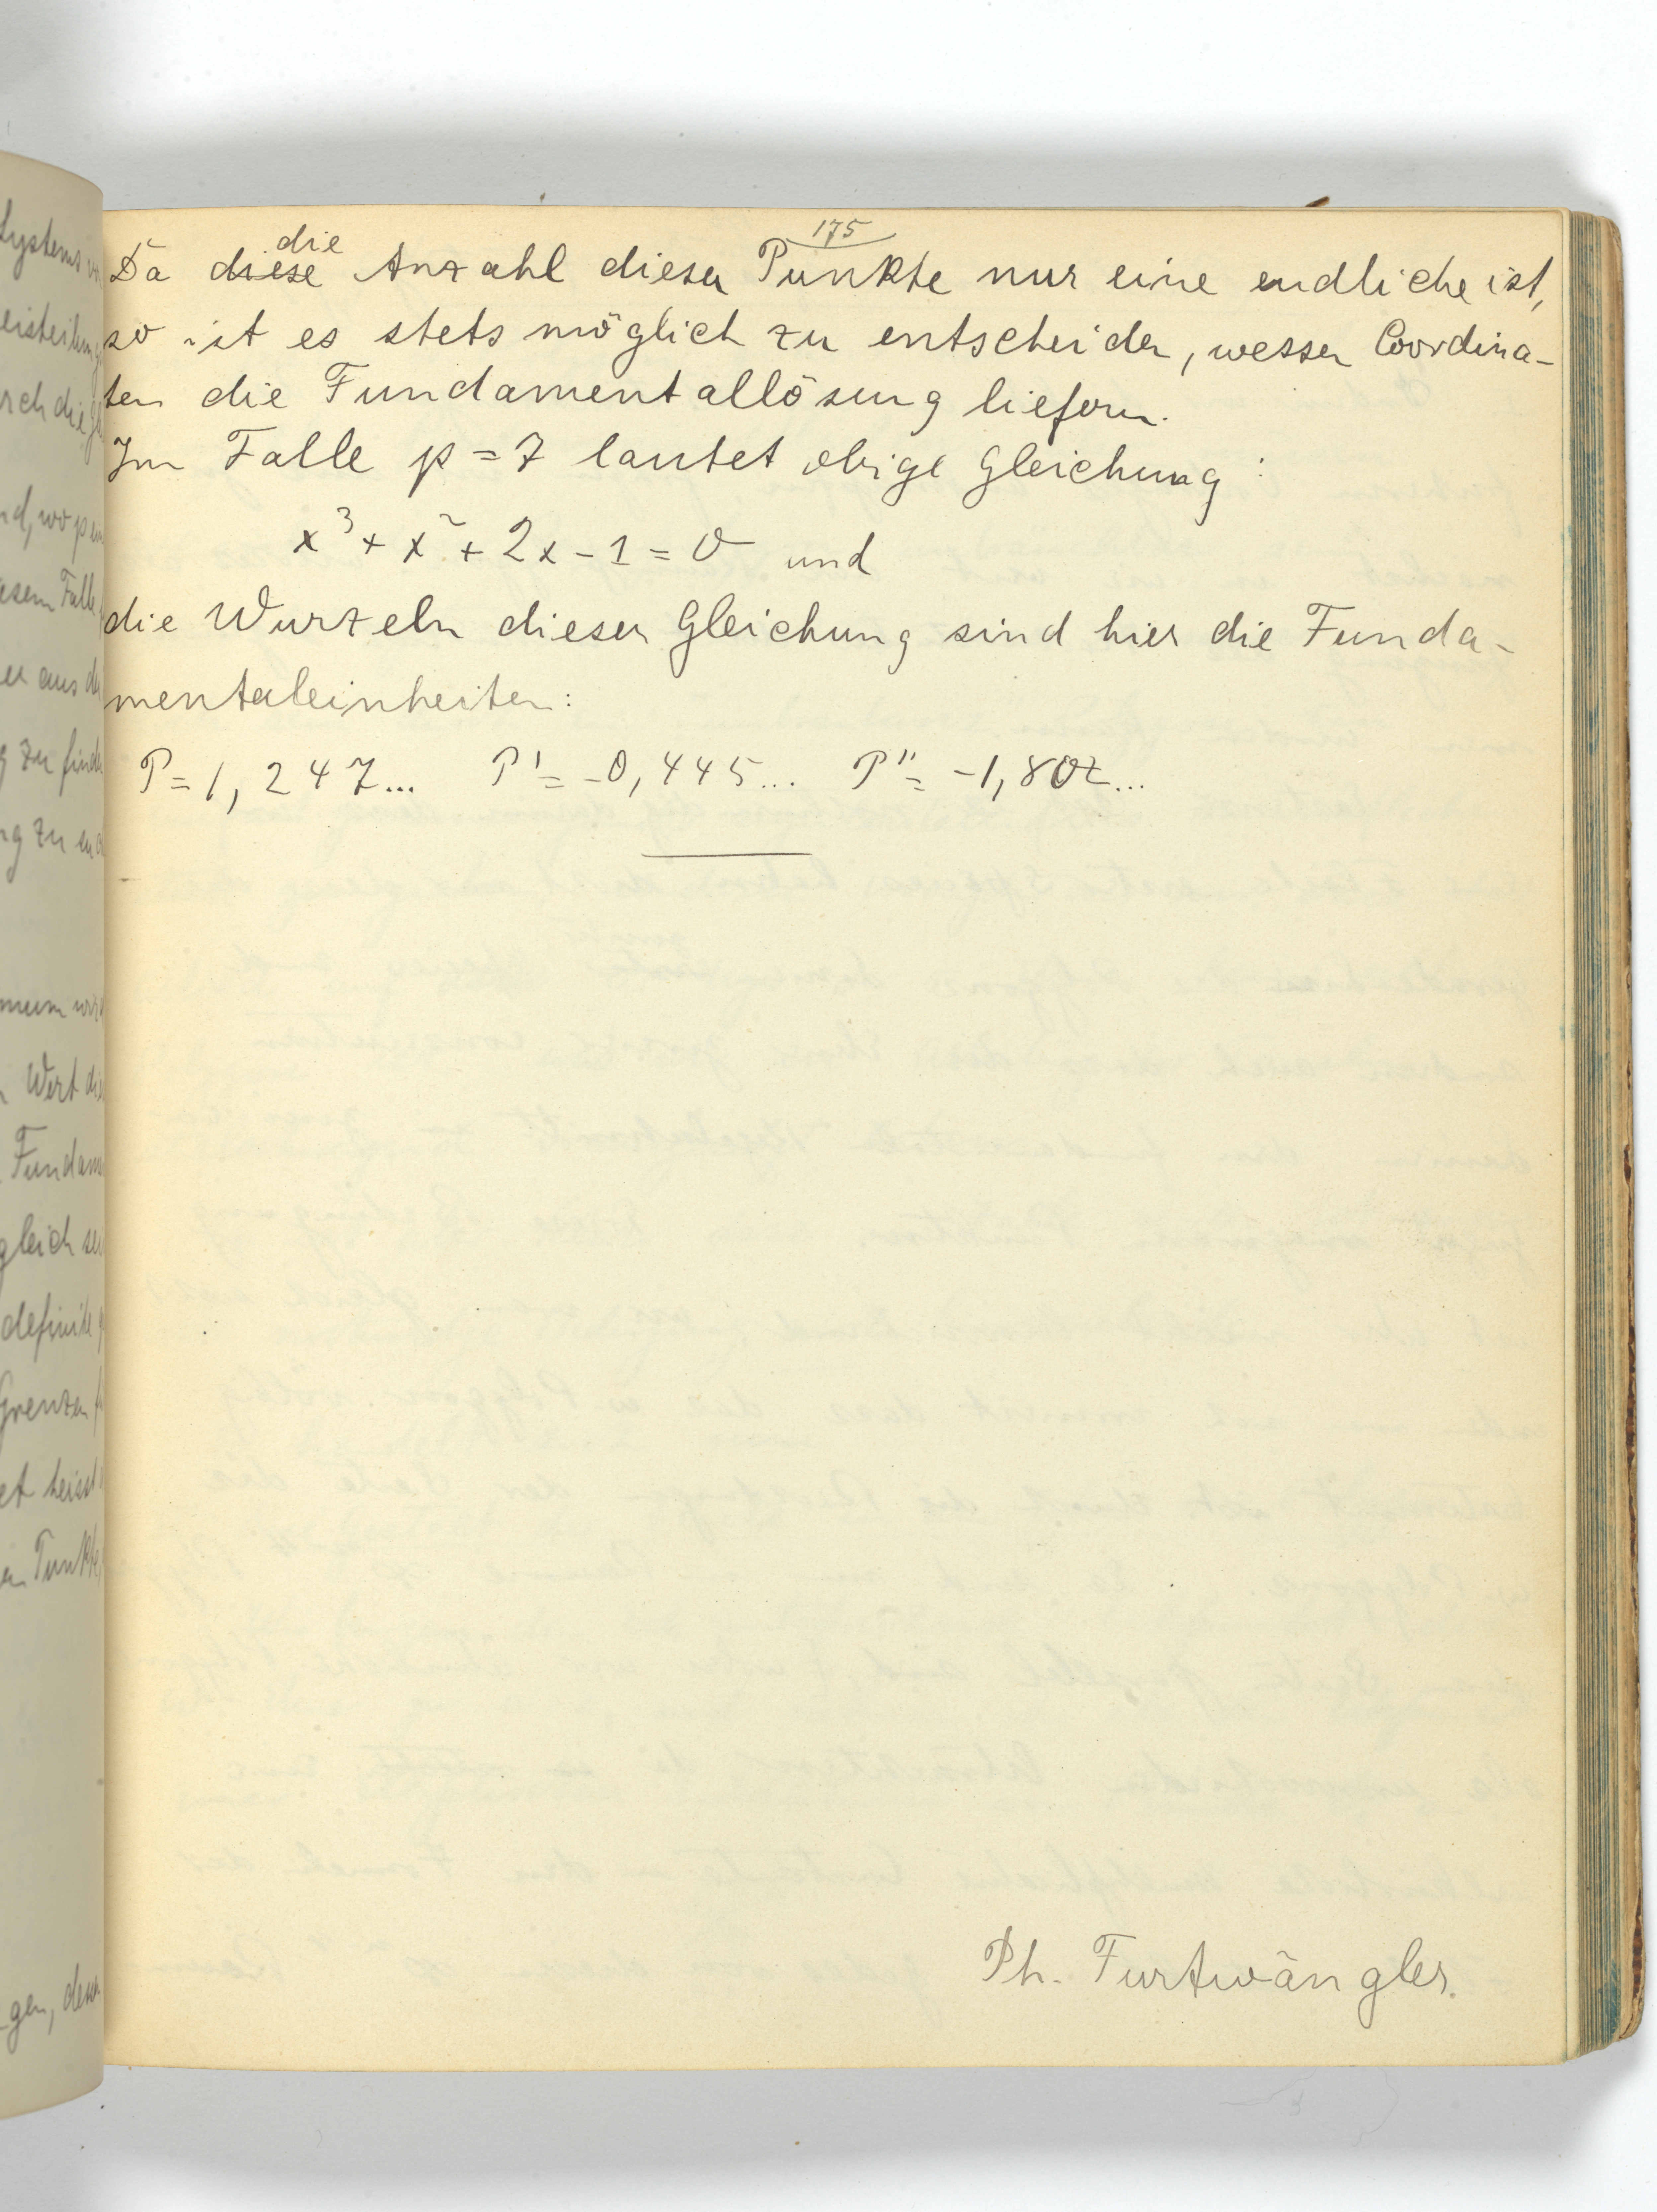 175
Da die Anzahl dieser Punkte nur eine endliche ist,
so ist es stets möglich zu entscheiden, wessen Coordina-
ten die Fundamentallösung liefern.
Im Falle p = 7 lautet obige Gleichung:
x³ + x² + 2x - 1 = 0 und
die Wurzeln dieser Gleichung sind hier die Funda-
mentaleinheiten:
P = 1,247... P' = -0,445... P'' = -1,802...
Ph. Furtwängler.